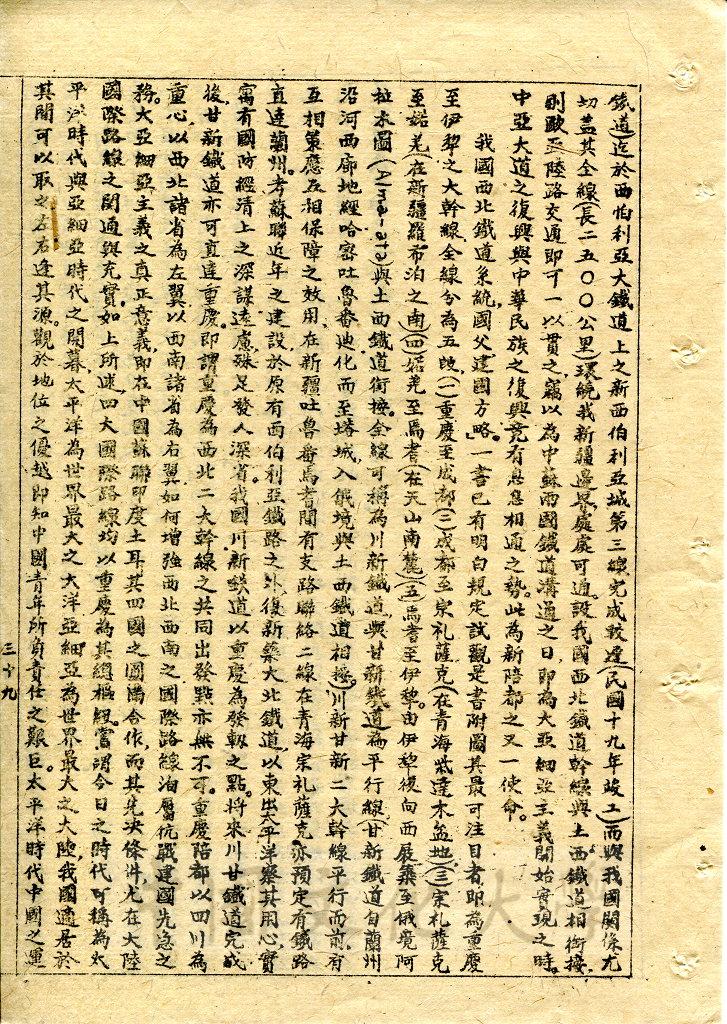 鐵道迄於西伯利亞大鐵道上之新西伯利亞城第三線完成較遲(民國十九年竣工)而與我國關係尤
切蓋其全線(長二五〇〇公里)環繞我新疆邊界處處可通設我國西北鐵道幹線與土西鐵道相銜接
則歐亞陸路交通即可一以貫之竊以為中蘇兩國鐵道溝通之日即為大亞細亞主義開始實現之時。
中亞大道之復興與中華民族之復興竟有息息相通之勢。此為新陪都之又一使命。
我國西北鐵道系統,國父「建國方略」一書已有明白規定試觀是書附圖其最可注目者即為重慶
至伊犂之大幹線全線分為五段(一)重慶至成都(二)成都至宗札薩克(在青海柴達木盆地)(三)宗札薩克
至婼羌(在新疆羅布泊之南)(四)婼羌至焉耆(在天山南麓)(五)焉耆至伊犂。由伊犂復向西展築至俄境阿
拉木圖(Alma-ata)與土西鐵道銜接。全線可稱為川新鐵道與甘新鐵道為平行線(甘新鐵道自蘭州
沿河西廊地經哈密吐魯番迪化而至塔城,入俄境與土西鐵道相接)川新甘新二大幹線平行而前,有
互相策應互相保障之效用,在新疆吐魯番焉耆間有支路聯絡二線在青海宗札薩克亦預定有鐵路
直達蘭州。考蘇聯近年之建設於原有西伯利亞鐵路之外,復新築大北鐵道,以東出太平洋察其用心,實
寓有國防經濟上之深謀遠慮,殊足發人深省。我國川新鐵道以重慶為發軔之點。將來川甘鐵道完成
後甘新鐵道亦可直達重慶。即謂重慶為西北二大幹線之共同出發點亦無不可。重慶陪都以四川為
重心,以西北諸省為左翼以西南諸省為右翼如何增強西北西南之國際路線洵屬抗戰建國先急之
務。大亞細亞主義之真正意義,即在中國蘇聯印度土耳其四國之圓滿合作,而其先決條件,尤在大陸
國際路線之開通與充實。如上所述,四大國際路線均以重慶為其總樞紐。嘗謂今日之時代可稱為太
平洋時代與亞細亞時代之開幕,太平洋為世界最大之大洋亞細亞為世界最大之大陸,我國適居於
其間可以取之左右逢其源。觀於地位之優越即知中國青年所負責任之艱巨。太平洋時代中國之運
三十九